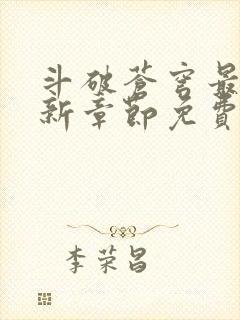 斗破苍穹最
新章节免费
李荣昌